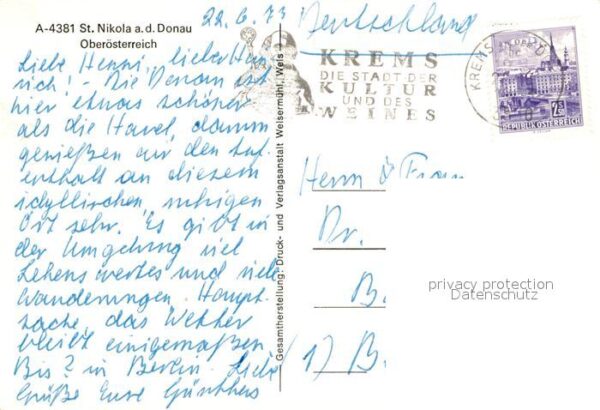 A-4381 St. Nikola a. d. Donau
Oberösterreich
22. 6. 73
Liebe Henni, lieber Hein
rich! - Die Donau ist
hier etwas schöner
als die Havel, darum
genießen wir den Auf
enthalt an diesem
idyllischen, ruhigen
Ort sehr. Es gibt in
der Umgebung viel
Sehenswertes und viele
Wanderungen. Haupt-
sache, das Wetter
bleibt einigermaßen
Bis ? in Berlin. Liebe
Grüße Eure Günthers
Gesamtherstellung: Druck- und Verlagsanstalt Welsermühl, Wels
Deutschland
KREMS
DIE STADT DER
KULTUR
UND DES
WEINES
KREMS
REPUBLIK ÖSTERREICH
Herrn & Frau
Dr.
B.
1) B.
privacy protection
Datenschutz